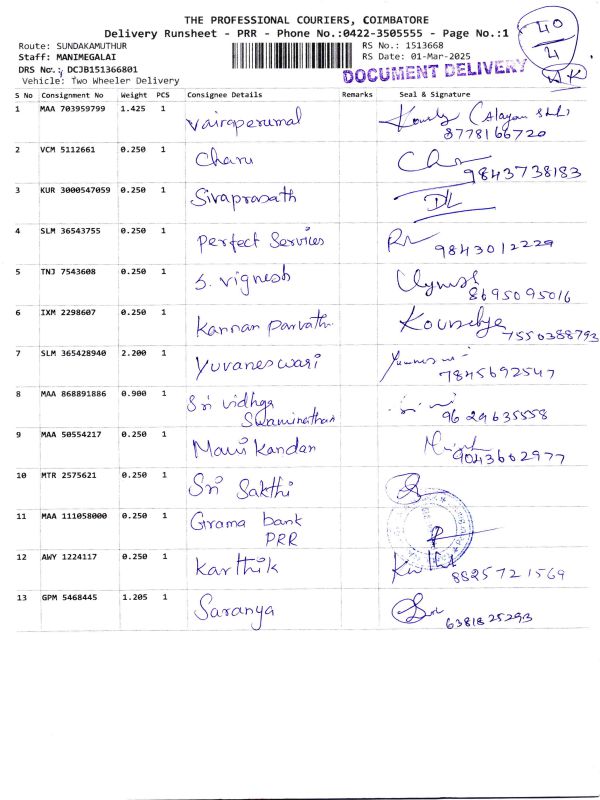 THE PROFESSIONAL COURIERS, COIMBATORE
Delivery Runsheet - PRR - Phone No.:0422-3505555 - Page No.:1
Route: SUNDAKAMUTHUR RS No.: 1513668
Staff: MANIMEGALAI RS Date: 01-Mar-2025
DRS No.: DCJB151366801
Vehicle: Two Wheeler Delivery
DOCUMENT DELIVERY
40
4
S No Consignment No Weight PCS Consignee Details Remarks Seal & Signature
1 MAA 703959799 1.425 1 Vairaperumal
8778166720
2 VCM 5112661 0.250 1 Charu
9843738183
3 KUR 3000547059 0.250 1 Sivaprasath DL
4 SLM 36543755 0.250 1 Perfect Services 9843012229
5 TNJ 7543608 0.250 1 S. Vignesh
8695095016
6 IXM 2298607 0.250 1 Kannan Parvathi
7550388793
7 SLM 365428940 2.200 1 Yuvaneswari
7845692547
8 MAA 868891886 0.900 1 Sri Vidhya
Swaminathan 9629635558
9 MAA 50554217 0.250 1 Mani Kandan
9043602977
10 MTR 2575621 0.250 1 Sri Sakthi
11 MAA 111058000 0.250 1 Grama bank
PRR
12 AWY 1224117 0.250 1 Karthik
8825721569
13 GPM 5468445 1.205 1 Saranya
6381825293